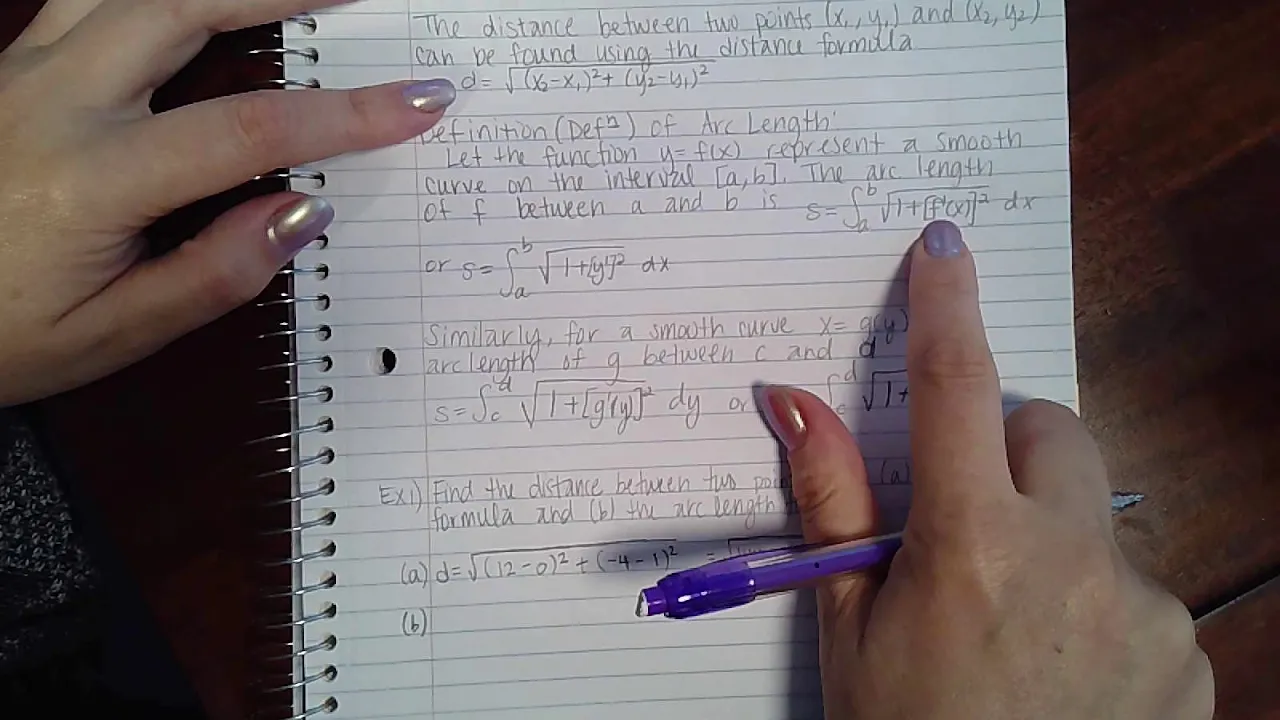 The distance between two points (x₁, y₁) and (x₂, y₂)
can be found using the distance formula
d = √(x₂-x₁)² + (y₂-y₁)²
Definition (Defⁿ) of Arc Length:
Let the function y=f(x) represent a smooth
curve on the interval [a,b]. The arc length
of f between a and b is s=∫ₐᵇ √1+[f'(x)]² dx
or s=∫ₐᵇ √1+[y']² dx
Similarly, for a smooth curve x= g(y)
arc length of g between c and d
s=∫꜀ᵈ √1+[g'(y)]² dy or ∫꜀ᵈ √1+
Ex1) Find the distance between two (a)
formula and (b) the arc length
(a) d=√(12-0)² + (-4-1)² =
(b)